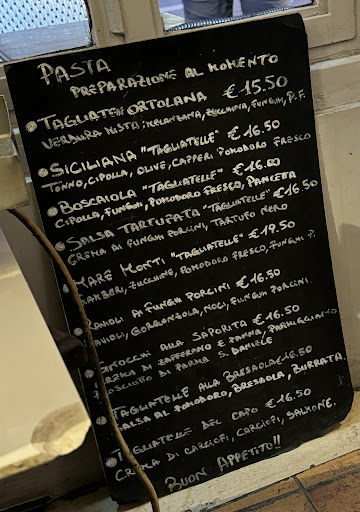 PASTA
PREPARAZIONE AL MOMENTO
TAGLIATELLE ORTOLANA €15.50
VERDURA MISTA: MELANZANA, ZUCCHINA, FUNGHI, P.F.
SICILIANA "TAGLIATELLE" €16.50
TONNO, CIPOLLA, OLIVE, CAPPERI POMODORO FRESCO
BOSCAIOLA "TAGLIATELLE" €16.80
CIPOLLA, FUNGHI, POMODORO FRESCO, PANCETA
SALSA TARTUFATA "TAGLIATELLE" €16.50
CREMA DI FUNGHI PORCINI, TARTUFO NERO
MARE MONTI "TAGLIATELLE" €19.50
GAMBERI, ZUCCHINE, POMODORO FRESCO, FUNGHI P.
RAVIOLI AI FUNGHI PORCINI €16.50
RAVIOLI, GORGONZOLA, NOCI, FUNGHI PORCINI.
GNOCCHI ALLA SAPORITA €16.50
CREMA DI ZAFFERANO E PANNA, PARMIGIANO
PROSCIUTTO DI PARMA S. DANIELE
TAGLIATELLE ALLA BRESAOLA €16.50
SALSA AL POMODORO, BRESAOLA, BURRATA.
TAGLIATELLE DEL CAPO €16.50
CREMA DI CARCIOFI, CARCIOFI, SALMONE.
BUON APPETITO!!